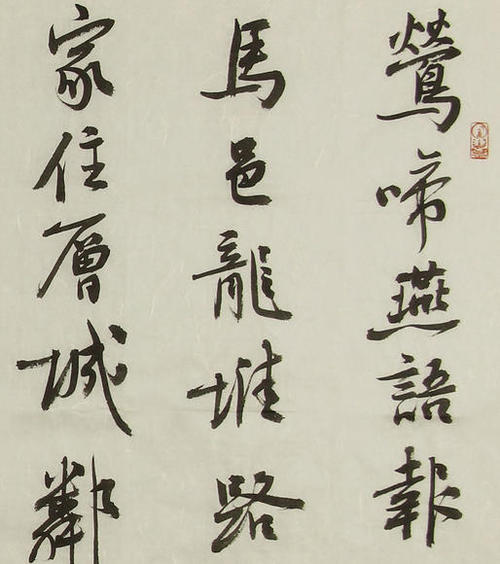 鶯啼燕語報
馬邑龍堆路
家住層城鄰